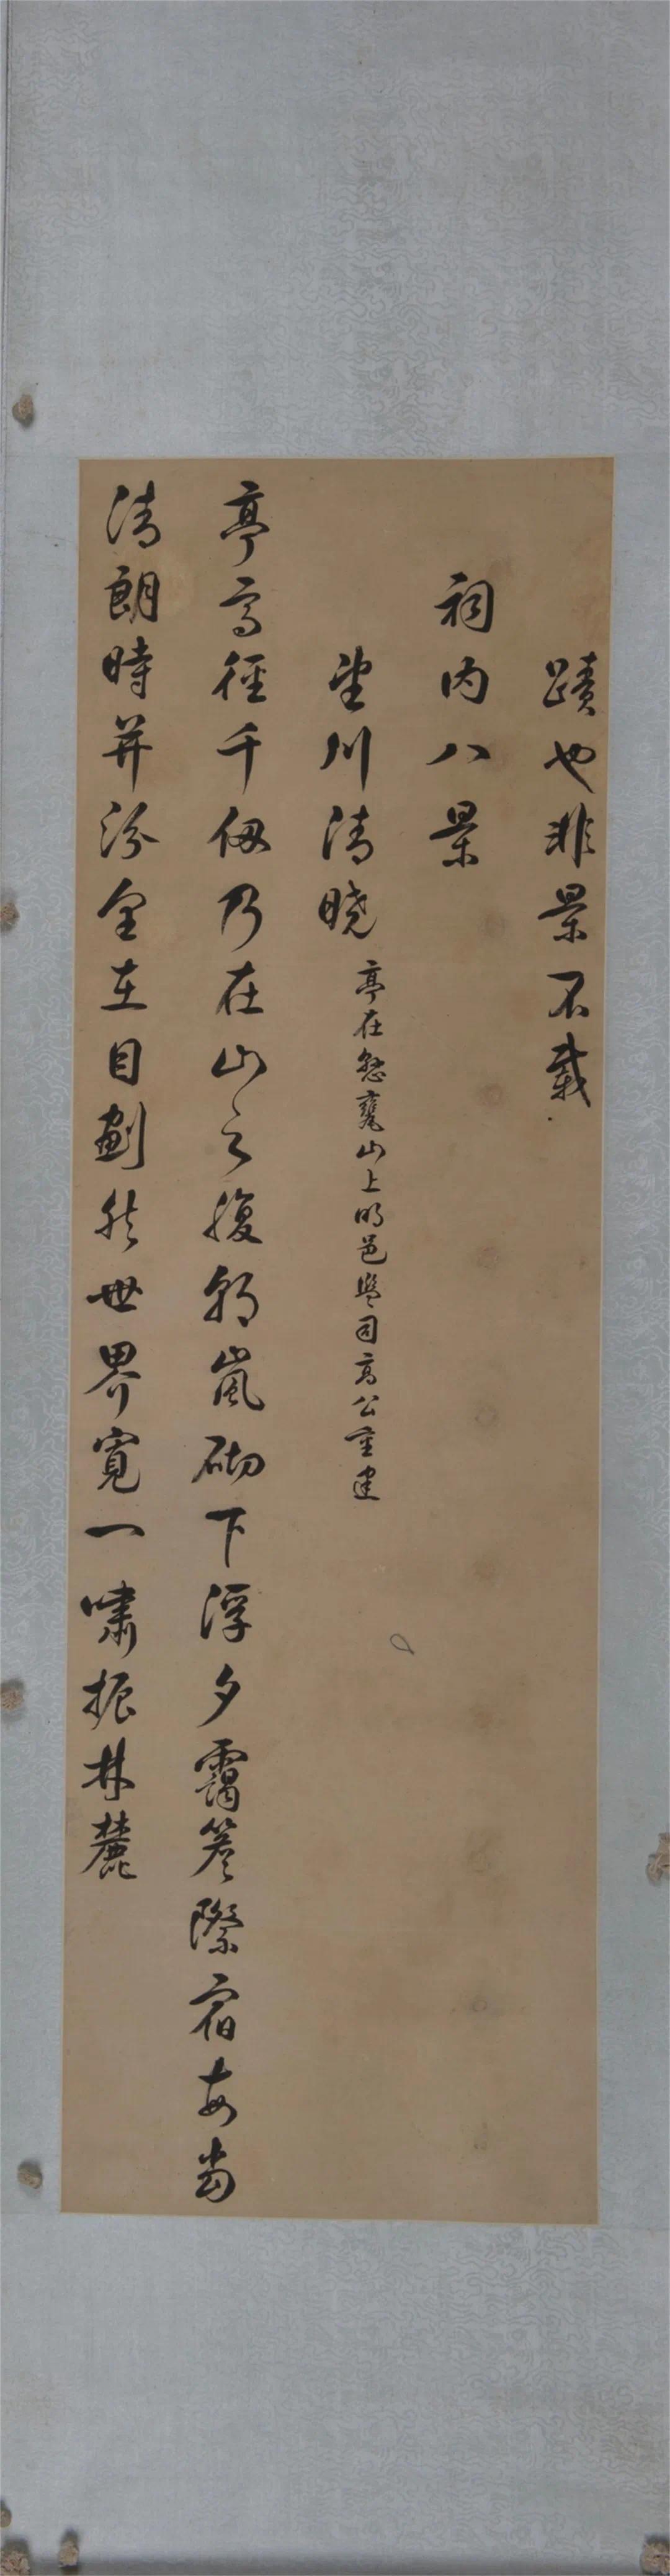 蹟也非景不載
祠内八景
望川清曉
亭在懸甕山上明邑監司高公重建
亭高徑千仞乃在山之腹朝嵐砌下浮夕靄簷際宿每當
清朗時并汾全在目劃然世界寬一嘯振林麓